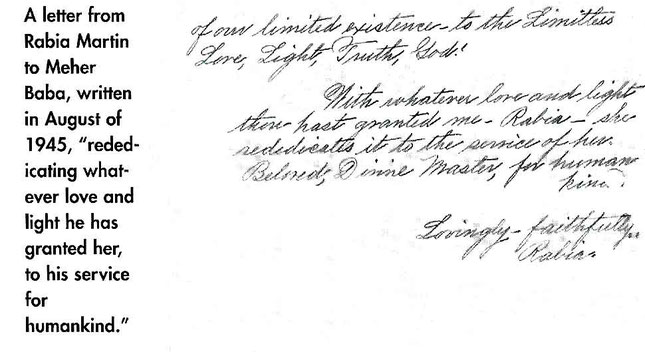 A letter from
Rabia Martin
to Meher
Baba, written
in August of
1945, “reded-
icating what-
ever love and
light he has
granted her,
to his service
for
humankind.”
of our limited existence - to the Limitless
Love, Light, Truth, God!
With whatever love and light
thou hast granted me - Rabia - she
rededicates it to the service of her
Beloved, Divine Master, for human
kind.
Lovingly - faithfully
Rabia.